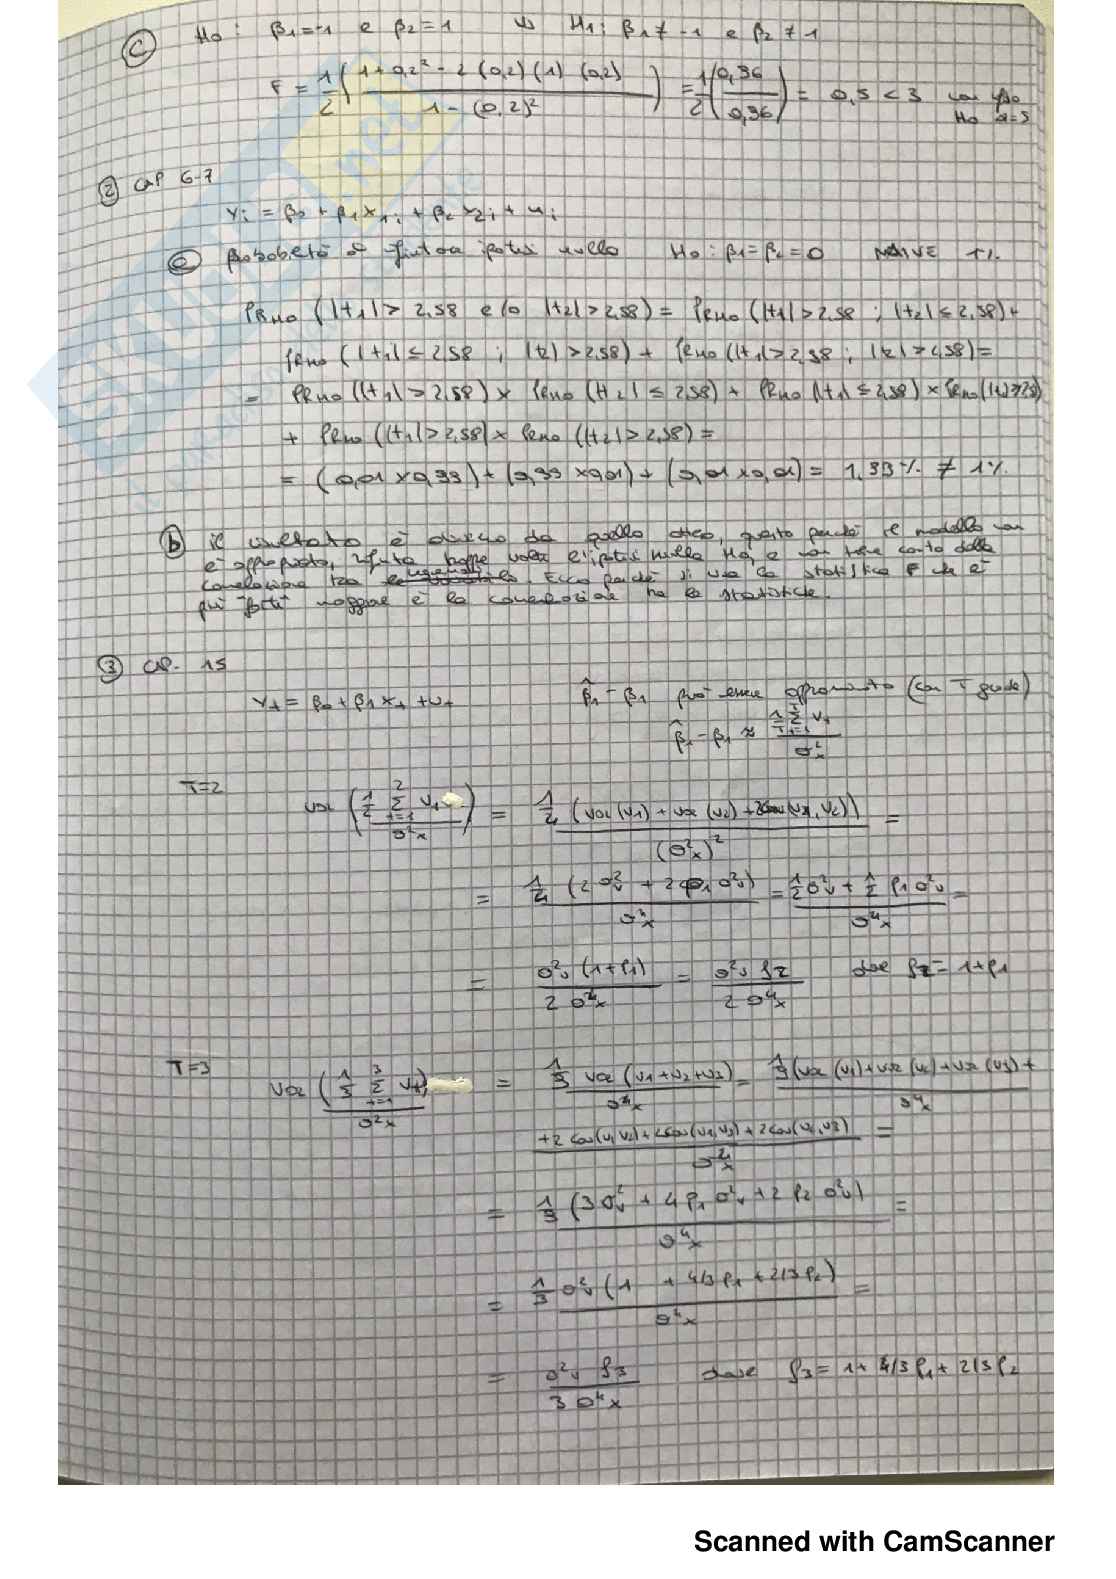 C H0: β1=-1 e β2=1 vs H1: β1≠-1 e β2≠1
F = 1/2 ( 1+0,2²-2(0,2)(1)(0,2) / 1-(0,2)² ) = 1/2 (0,96/0,96) = 0,5 < 3 non
H0
2 CAP 6-7
Yi = β0 + β1X1i + β2X2i + ui
ipotesi nulla H0: β1=β2=0 NAIVE 1%
PRH0 (|t1|> 2,58 e/o |t2|>2,58) = PRH0 (|t1|>2,58 ; |t2|≤2,58)+
PRH0 (|t1|≤2,58 ; |t2|>2,58) + PRH0 (|t1|>2,58 ; |t2|>2,58)=
= PRH0 (|t1|>2,58) × PRH0 (|t2|≤2,58) + PRH0 (|t1|≤2,58) × PRH0 (|t2|>2,58)
+ PRH0 (|t1|>2,58) × PRH0 (|t2|>2,58) =
= (0,01 × 0,99) + (0,99 × 0,01) + (0,01 × 0,01) = 1,99% ≠ 1%
b il risultato è diverso da quello atteso, questo perché il modello non
è appropriato, rifiuta troppe volte l'ipotesi nulla H0, e non tiene conto della
correlazione tra le. Ecco perché si usa la statistica F che è
più "forte" maggiore è la correlazione tra le statistiche.
3 CAP. 15
Yt = β0 + β1Xt + ut β̂1 - β1 può essere (con T grande)
β̂1 - β1 ≈ 1/T Σ t=1 T vt / σ²x
T=2 var ( 1/2 Σ t=1 2 vt / σ²x ) = 1/4 (var(v1) + var(v2) + 2cov(v1,v2)) / (σ²x)² =
= 1/4 (2σ²v + 2ρ1σ²v) / σ⁴x = 1/2 σ²v + 1/2 ρ1σ²v / σ⁴x =
= σ²v (1+ρ1) / 2σ⁴x = σ²v f2 / 2σ⁴x dove f2 = 1+ρ1
T=3 var ( 1/3 Σ t=1 3 vt / σ²x ) = 1/9 var (v1+v2+v3) / σ⁴x = 1/9 (var(v1)+var(v2)+var(v3)+ / σ⁴x
+2cov(v1,v2)+2cov(v1,v3)+2cov(v2,v3) / σ⁴x =
= 1/9 (3σ²v + 4ρ1σ²v + 2ρ2σ²v) / σ⁴x =
= 1/3 σ²v (1 + 4/3ρ1 + 2/3ρ2) / σ⁴x =
= σ²v f3 / 3σ⁴x dove f3 = 1 + 4/3ρ1 + 2/3ρ2
Scanned with CamScanner